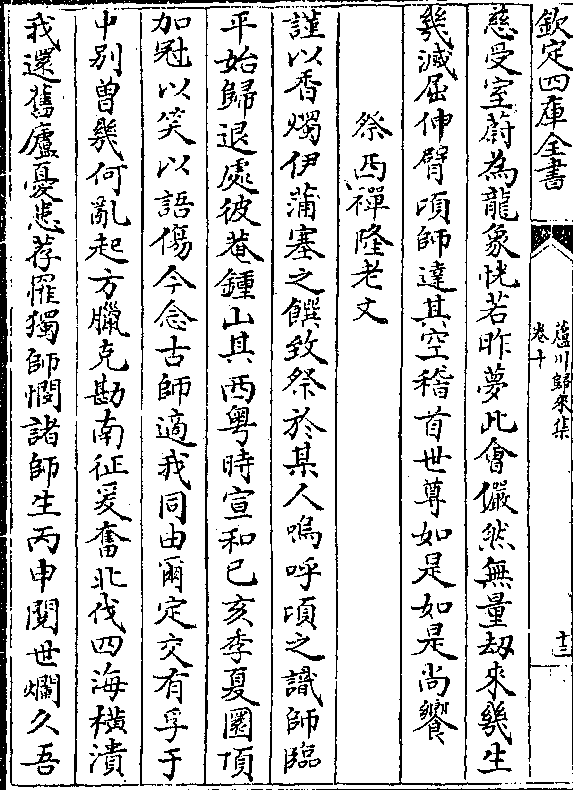 欽定四庫全書
蘆川歸來集
卷十
十三
慈受室蔚為龍象恍若昨夢此會儼然無量劫來幾生
幾滅屈伸臂頃師達其空稽首世尊如是如是尚饗
祭西禪隆老文
謹以香燭伊蒲塞之饌致祭於某人嗚呼頃之識師臨
平始歸退處彼菴鍾山其西粵時宣和己亥季夏圜頂
加冠以笑以語傷今念古師適我同由爾定交有孚于
中别曾幾何亂起方臘克勘南征爰奮北伐四海横潰
我還舊廬憂患荐罹獨師憫諸師生丙申閱世爛久吾